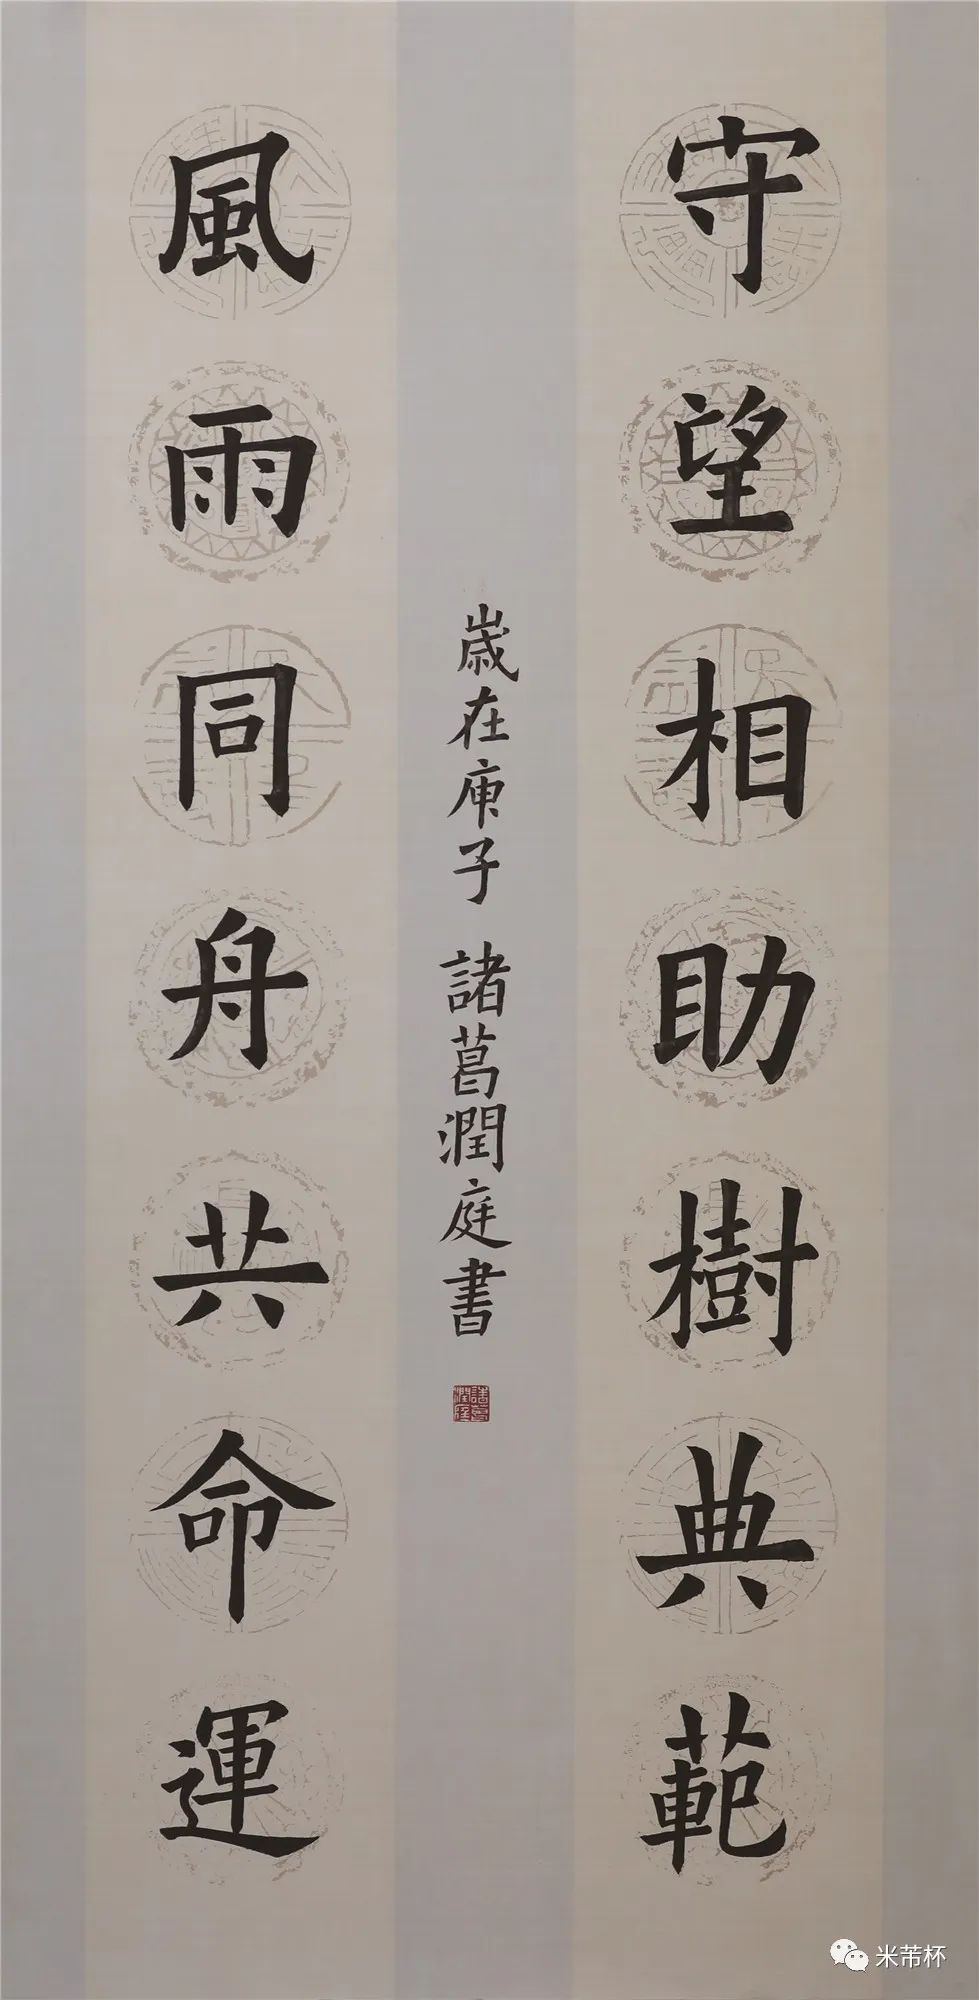 守望相助樹典範
風雨同舟共命運
歲在庚子 諸葛潤庭書
諸葛潤庭
米芾杯